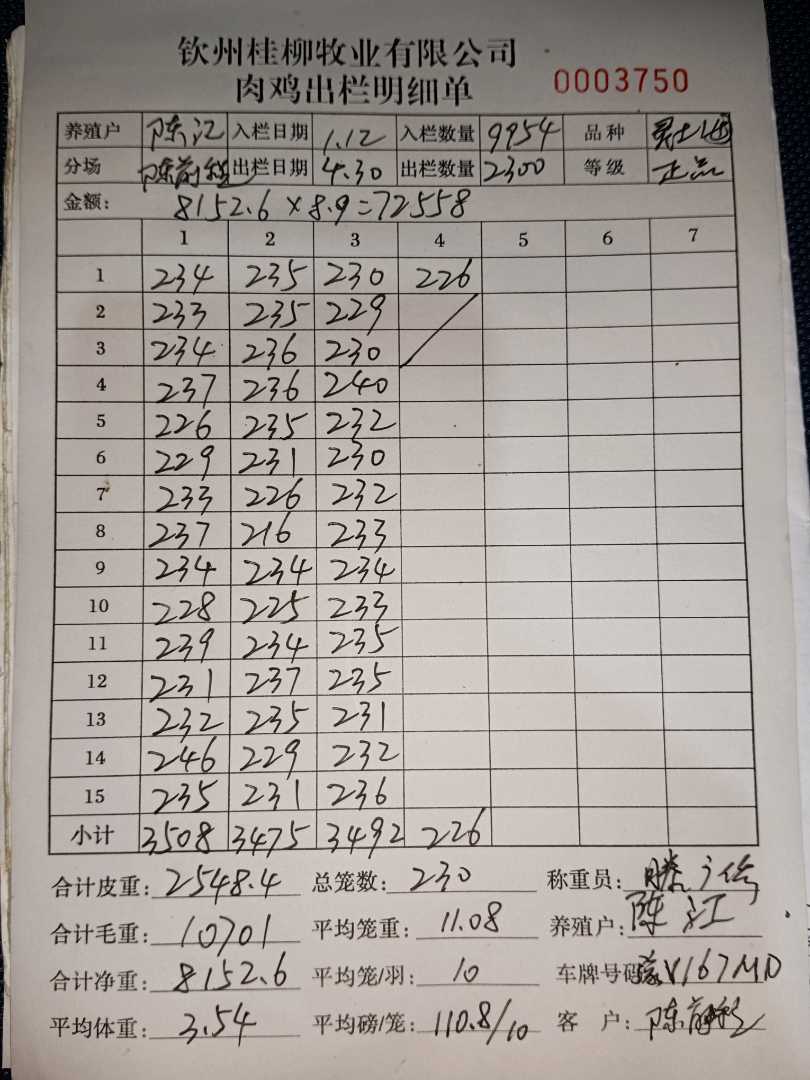 钦州桂柳牧业有限公司
肉鸡出栏明细单 0003750
养殖户 陈江 入栏日期 1.12 入栏数量 9954 品种
分场 出栏日期 4.30 出栏数量 2300 等级 正品
金额： 8152.6×8.9=72558
1 2 3 4 5 6 7
1 234 235 230 226
2 233 235 229
3 234 236 230
4 237 236 240
5 226 235 232
6 229 231 230
7 233 226 232
8 237 216 233
9 234 234 234
10 228 225 233
11 239 234 235
12 231 237 235
13 232 235 231
14 246 229 232
15 235 231 236
小计 3508 3475 3492 226
合计皮重： 2548.4 总笼数： 230 称重员：
合计毛重： 10701 平均笼重： 11.08 养殖户： 陈江
合计净重： 8152.6 平均笼/羽： 10 车牌号码 V167MD
平均体重： 3.54 平均磅/笼： 110.8/10 客 户：